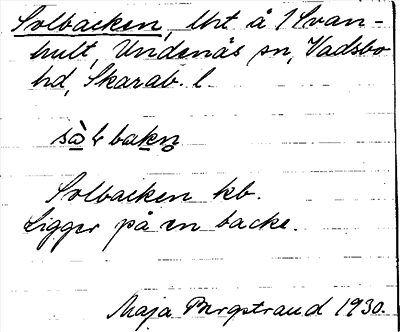 Solbacken, Uht å 1 Svan-
hult, Undenäs sn, Vadsbo
hd, Skarab. l.
Solbacken kb.
Ligger på en backe.
Maja Bergstrand 1930.